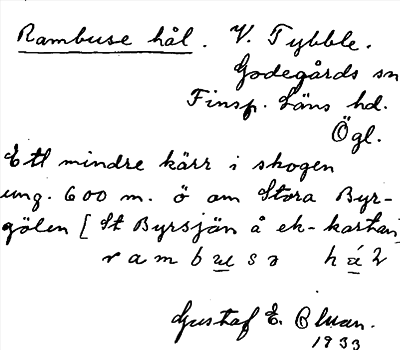 Rambuse hål. V. Tybble.
Godegårds sn
Finsp. Läns hd.
Ögl.
Ett mindre kärr i skogen
ung. 600 m. ö om Stora Byr-
gölen [St Byrsjön å ek-kartan]
rambusə
Gustaf E. Bluan.
1933